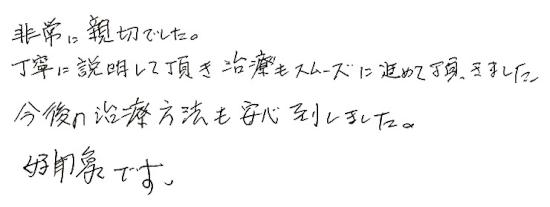 非常に親切でした。
丁寧に説明して頂き治療もスムーズに進めて頂きました
今後の治療方法も安心致しました。
好印象です。